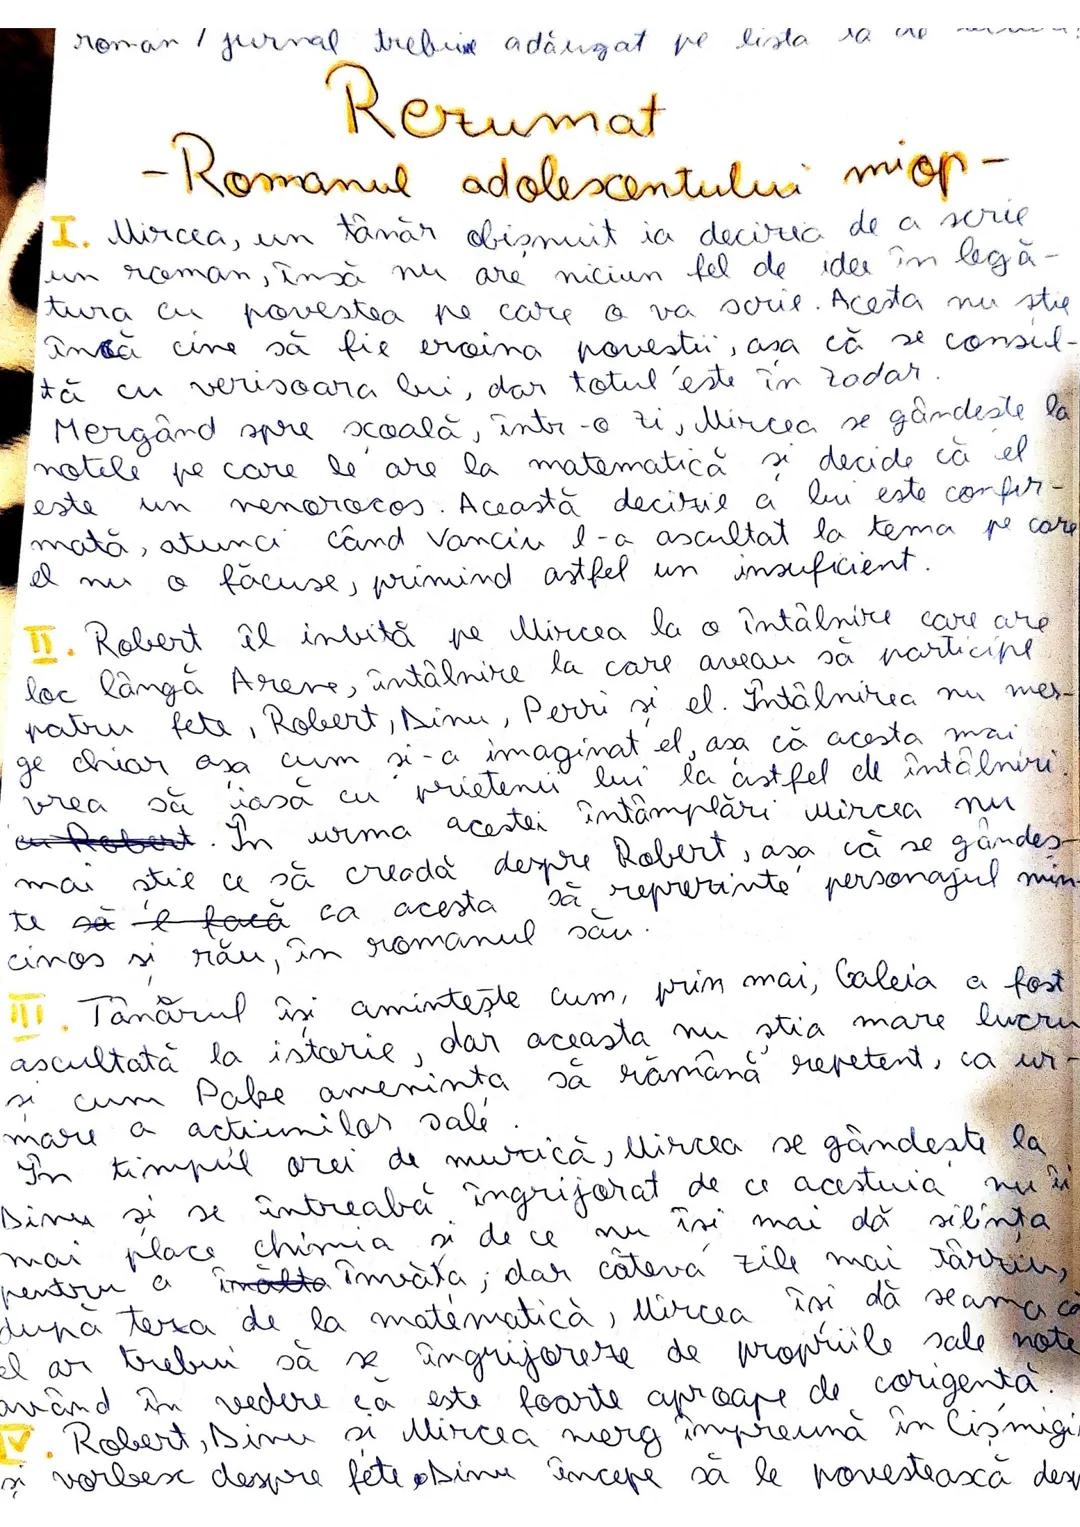 roman / jurnal trebuie adăugat pe lista
Rezumat
-Romanul adolescentului miop-
I. Mircea, un tânăr obișnuit ia decizia de a scrie
un roman, însă nu are niciun fel de idee în legă-
tura cu povestea pe care o va scrie. Acesta nu știe
încă cine să fie eroina povestii, asa că se consul-
tă cu verisoara lui, dar totul este în zadar.
Mergând spre scoală, într-o zi, Mircea se gândeste la
notele pe care le are la matematică si decide că el
este un nenorocos. Această decizie a lui este confir-
mată, atunci când Vanciu l-a ascultat la tema pe care
el nu o făcuse, primind astfel un insuficient.
II. Robert îl invită pe Mircea la o întâlnire care are
loc lângă Arene, întâlnire la care aveau să participe
patru fete, Robert, Dinu, Perri si el. Întâlnirea nu mer-
ge chiar asa cum si-a imaginat el, asa că acesta mai
vrea să iasă cu prietenii lui la astfel de întâlniri.
cu Robert. În urma acestei întâmplări Mircea nu
mai stie ce să creadă despre Robert, asa că se gândes-
te să l facă ca acesta să reprezinte personajul min-
cinos si rău, în romanul său.
III. Tânărul îsi aminteşte cum, prin mai, Caleia a fost
ascultată la istorie, dar aceasta nu știa mare lucru
si cum Pake amenința să rămână repetent, ca ur-
mare a actiunilor sale.
În timpul orei de muzică, Mircea se gândeste la
Dinu si se întreabă îngrijorat de ce acestuia nu îi
mai place chimia si de ce nu îsi mai dă silința
pentru a învăța, dar câteva zile mai târziu,
după teza de la matematică, Mircea îsi dă seama că
el ar trebui să se îngrijoreze de propriile sale note
având în vedere că este foarte aproape de corigentă.
IV. Robert, Dinu si Mircea merg împreună în Cișmigi
si vorbesc despre fete. Dinu începe să le povestească desp